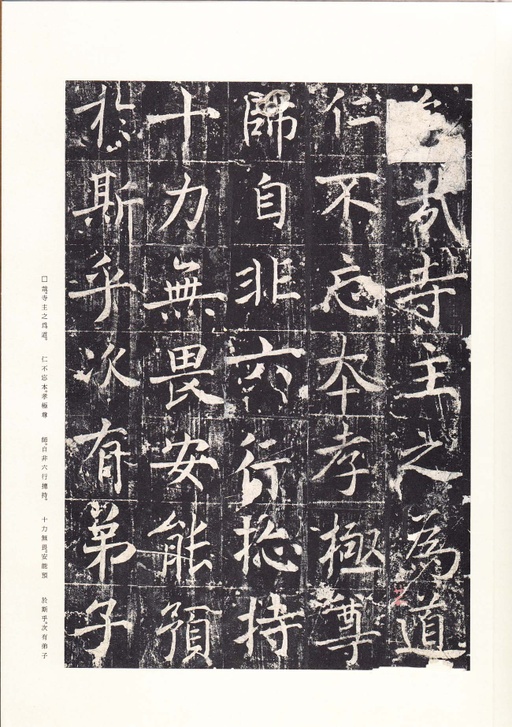 哉寺主之為道
仁不忘本孝極尊
師自非六行揔持
十力無畏安能預
於斯乎次有弟子
□哉寺主之爲道、 仁不忘本、孝極尊 師、自非六行揔持、 十力無畏、安能預 於斯乎、次有弟子